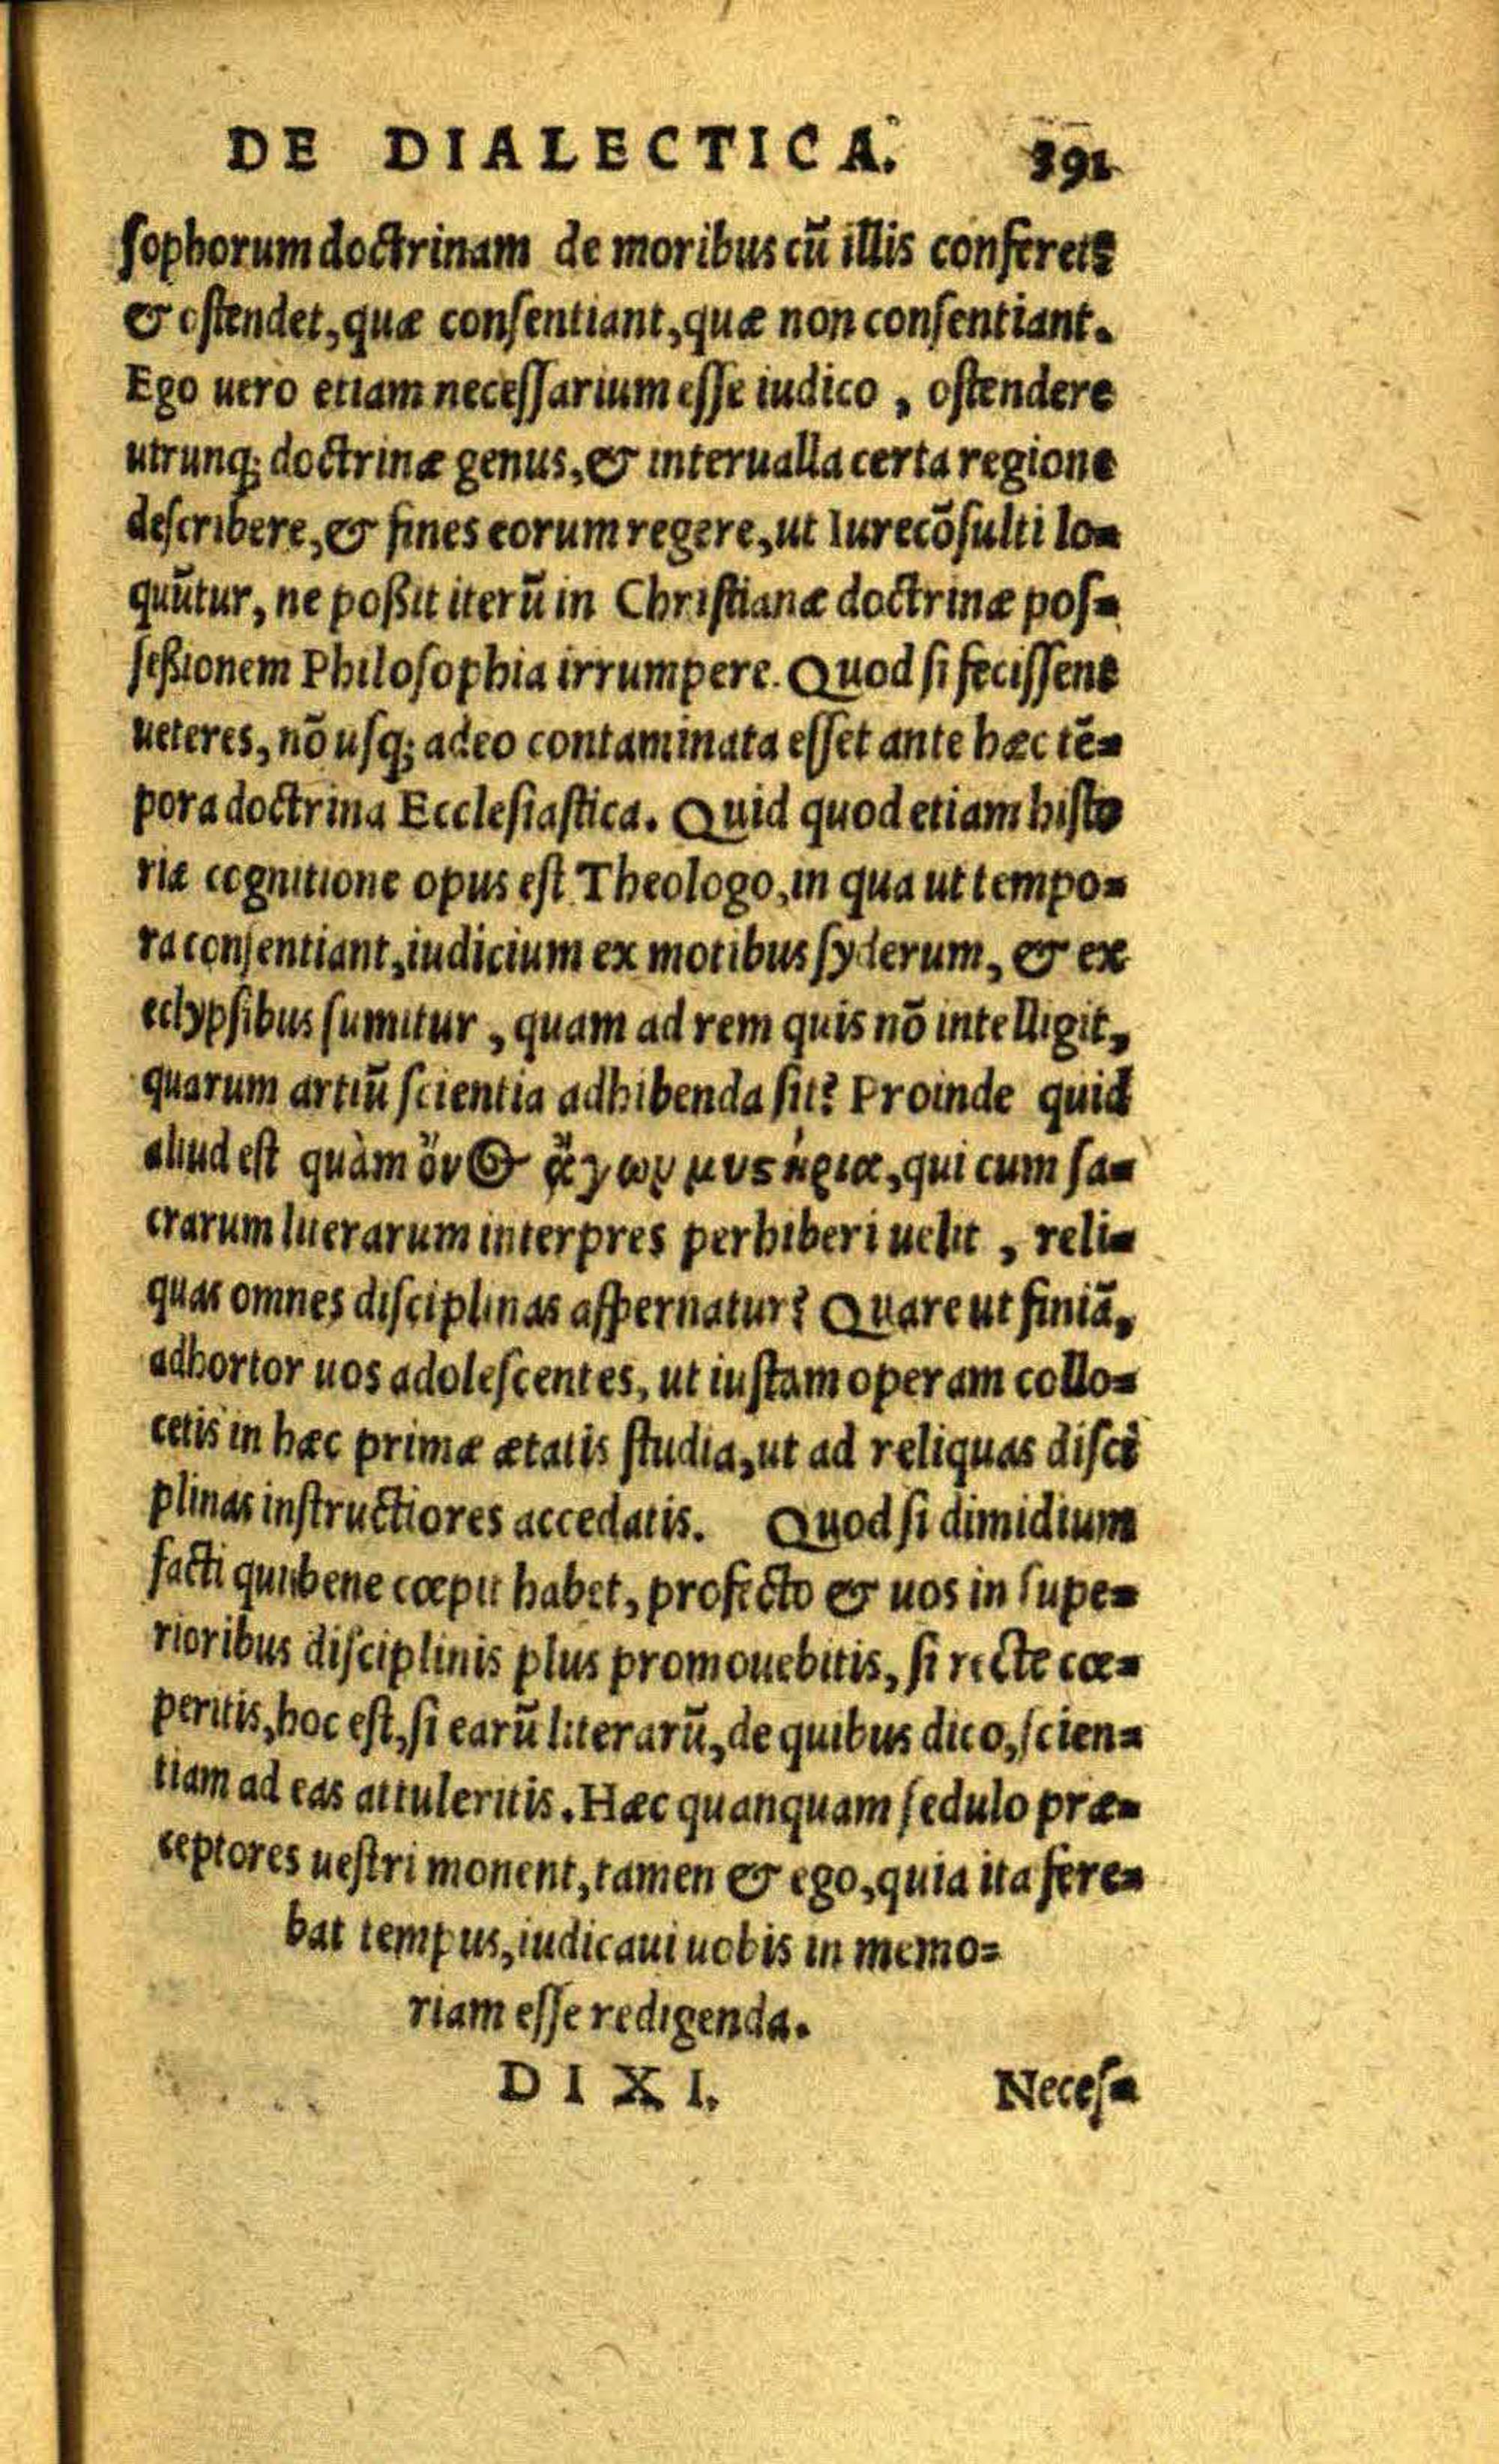 DE DIALECTICA. 391
ſophorum doctrinam de moribus cū illis conferet:
& oſtendet, quæ conſentiant, quæ non conſentiant.
Ego uero etiam neceſſarium eſſe iudico, oſtendere
utrunq; doctrinæ genus, & interualla certa regione
deſcribere, & fines eorum regere, ut Iurecōſulti lo-
quūtur, ne poßit iterū in Chriſtianæ doctrinæ poſ-
ſeßionem Philoſophia irrumpere. Quod ſi feciſſent
ueteres, nō uſq; adeo contaminata eſſet ante hæc tē-
pora doctrina Eccleſiaſtica. Quid quod etiam hiſto
riæ cognitione opus eſt Theologo, in qua ut tempo-
ra conſentiant, iudicium ex motibus ſyderum, & ex
eclypſibus ſumitur, quam ad rem quis nō intelligit,
quarum artiū ſcientia adhibenda ſit? Proinde quid
aliud est quàm ὄνος ἄγων μυςήρια, qui cum ſa-
crarum literarum interpres perhiberi uelit, reli-
quas omnes diſciplinas aſpernatur? Quare ut finiā,
adhortor uos adoleſcentes, ut iuſtam operam collo-
cetis in hæc primæ ætatis ſtudia, ut ad reliquas diſci
plinas inſtructiores accedatis. Quod ſi dimidium
facti qui bene cœpit habet, profecto & uos in ſupe-
rioribus diſciplinis plus promouebitis, ſi recte cœ-
peritis, hoc eſt, ſi earū literarū, de quibus dico, ſcien-
tiam ad eas attuleritis. Hæc quanquam ſedulo præ-
ceptores ueſtri monent, tamen & ego, quia ita fere-
bat tempus, iudicaui uobis in memo-
riam eſſe redigenda.
DIXI. Neceſ-